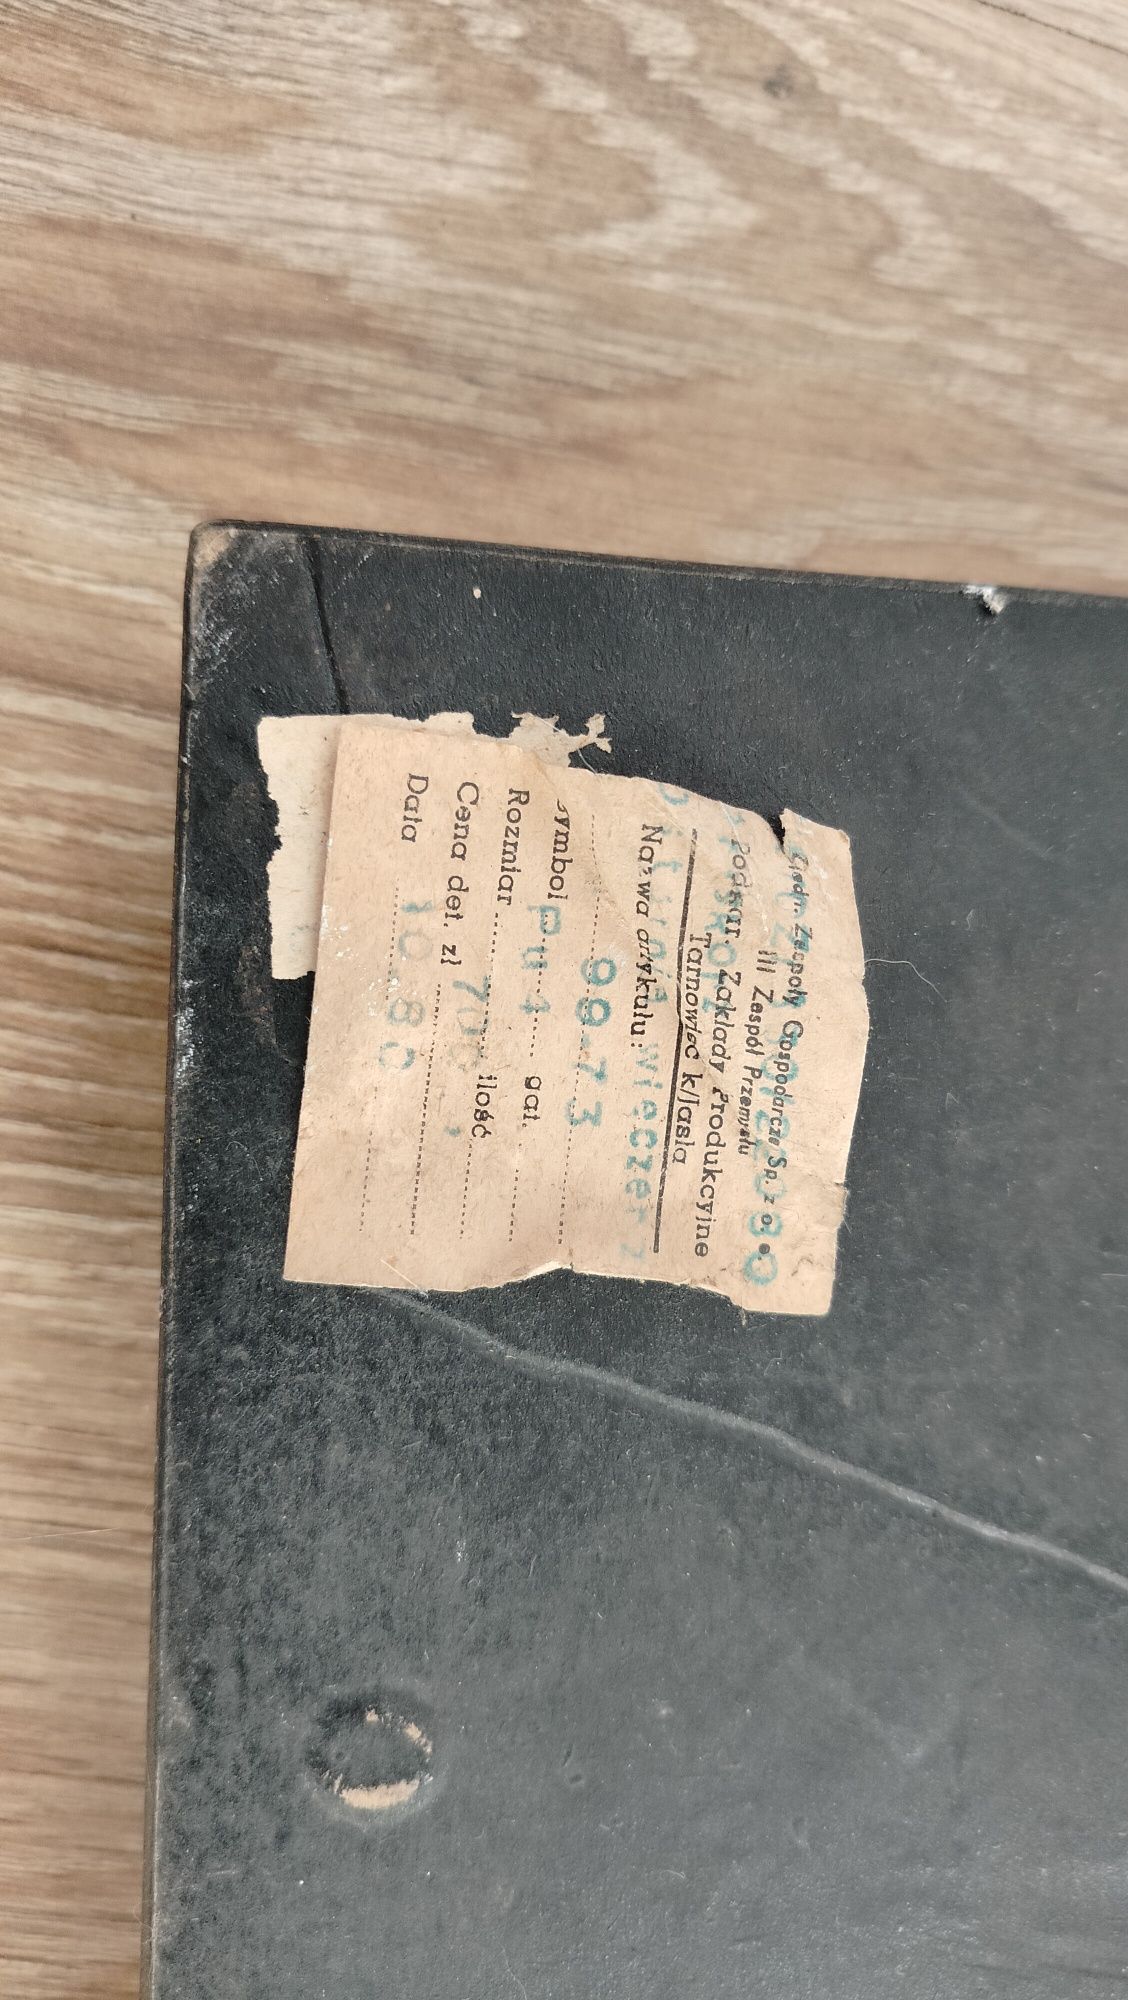 Zjedn. Zespoły Gospodarcze Sp. z o. o.
III Zespół Przemysłu
Zakłady Produkcyjne
Tarnowiec k/Jasła
Nazwa artykułu:
wieczer
99.73
ymbol Pu4
Rozmiar gat.
Cena det. zł 700 ilość
Data 10.80